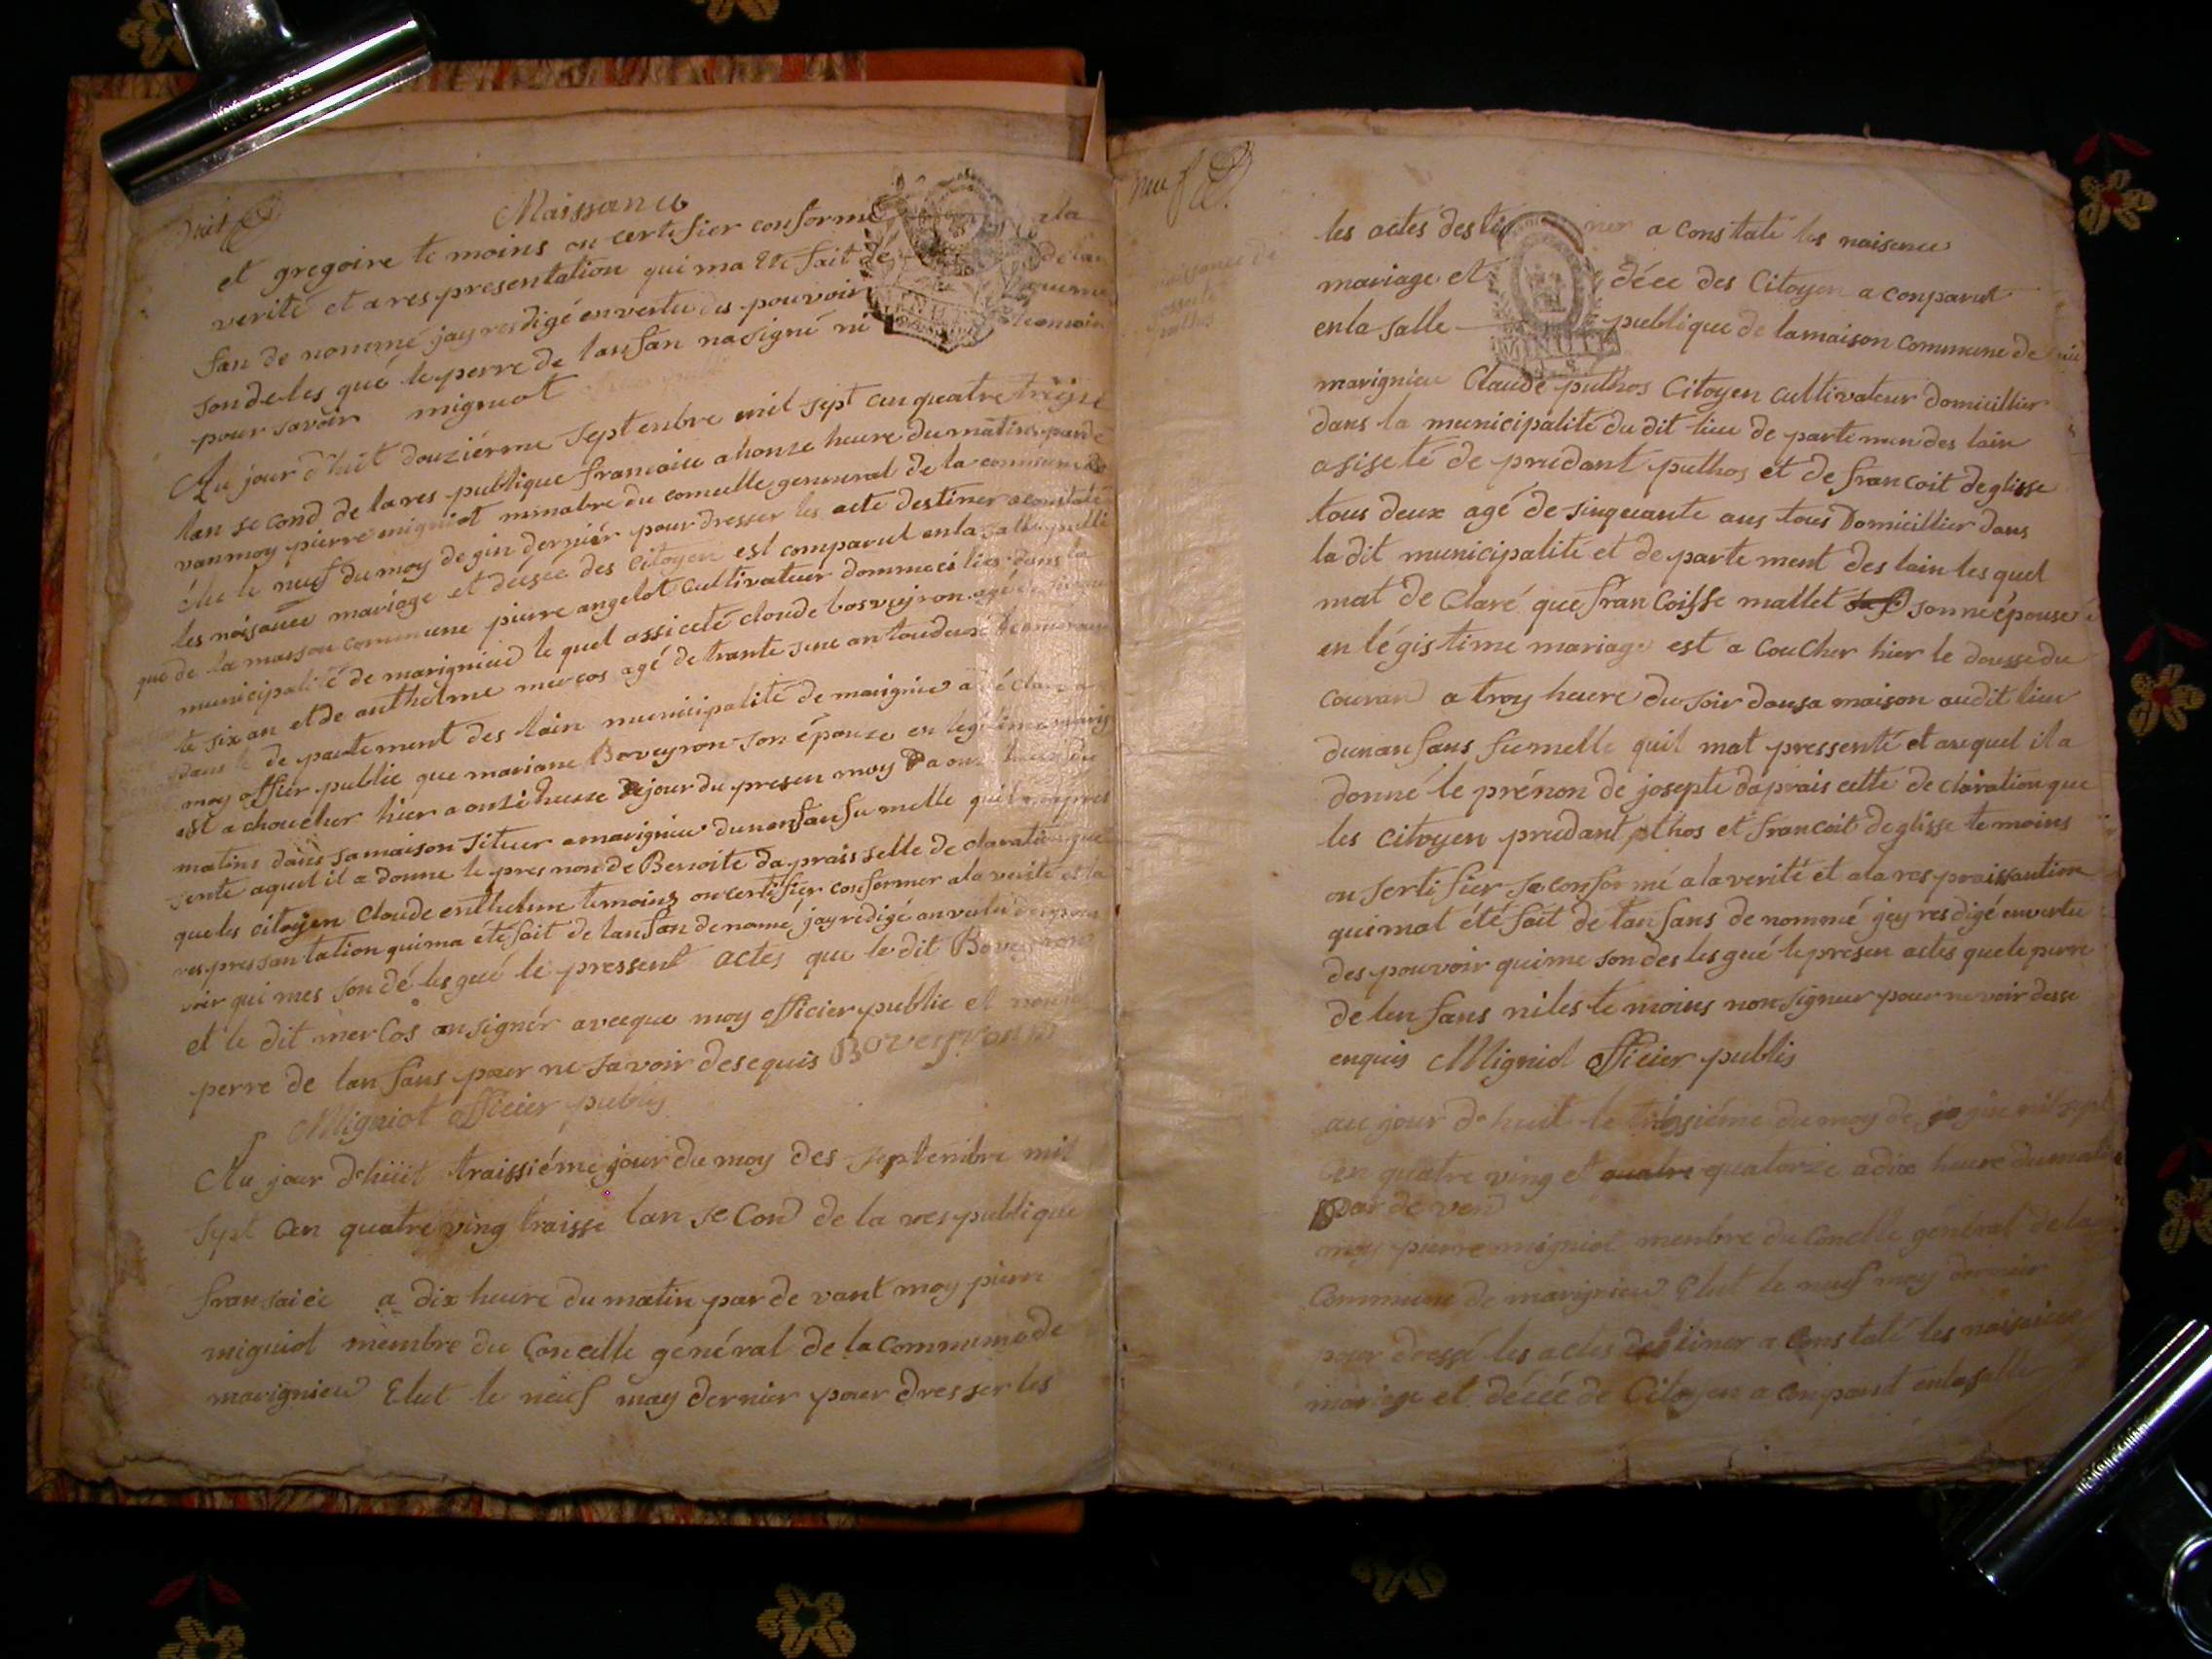 huit
Naissance
et gregoire temoins on certifier conforme a la
verité et a respresentation qui ma ete fait de lan
fan de nommé jay resdigé en vertu des pouvoir qui me
son deles gué le perre de lanfan na signé ni temoin
pour savoir migniot
Au jour d'huit douziérme Septenbre mil sept cen quatre
lan second de la res publique francaise a honze heure du matins parde
van moy pierre migniot minabre du comcelle genneral de la commune de
élue le neuf du moy de gin dernier pour dresser les acte destiner a constaté
les naisance mariage et décsée des Citoyen est comparut en la salle publi
que de la maison commune pierre angelot cultivateur dommecilier dans la
municipalité de marignieu le quel assisceté cloude bosveyron agé de
te six an et de anthelme mercos agé de trante sene an toudeux
dans le de partement des lain municipalité de marignieu a déclare a
moy offiier public que mariane Boveyron son épouze en legitime mariage
est a choucher hier a onze heure du jour du presen moy a onze heure du
matins dans sa maison situer a marignieu dunenfan fumelle quil
sente aquel il a donne le pres non de Benoite da prais selle de claration que
que les citoyen Cloude enthelme temoins on certifier conformer a la verité et la
respressantation qui ma été fait de lanfan denomé jay redigé an vertu des pou
voir qui mes son dé les gué le pressent actes que le dit Boveyron
et le dit mercos on signér avecque moy officier public et non le
perre de lanfans pour ne savoir desequis Boveyron
Migniot officier publis
Au jour d'huit traissiéme jour du moy des septembre mil
sept cen quatre ving traisse lan seCond de la respublique
fransaiée a dix heure du matin par de vant moy pierre
migniot membre du Concelle général de la commune de
marignieu Elut le neuf moy dernier pour dresser les
neuf
naissance de
josepte
puthos
les actes destiner a constaté les naisence
mariage et décec des Citoyen a conparut
en la salle publique de la maison commune de
marignieu Claude puthos Citoyen cultivateur domicillier
dans la municipalité du dit lieu de partemen des lain
asisceté de prudant puthos et de francoit deglisse
tous deux agé de sinquante ans tous Domicillier dans
la dit municipalité et de parte ment des lain les quel
mat de Claré que francoisse mallet sonne épouse
en légistime mariage est a couCher hier le dousse du
couran a troy heure du soir dansa maison audit lieu
dunanfans fumelle quil mat pressenté et auquel il a
donné le prénon de josepte daprais cette de claration que
les citoyen prudant pthos et francoit deglisse temoins
on serti fier se conformé a la verité et a la res praissantion
qui mat été fait de lanfans de nommé jey resdigé en vertu
des pouvoir qui me son des les gué le présen actes que le perre
de lenfans ni les temoins non signeur pour ne voir desse
enquis Migniol officier publis
au jour d'huit le troissiéme du moy de gin mil sept
cen quatre ving et quatorze a dix heure du matin
par de ven
moy pierre migniot menbre du Concelle général de la
Commune de marignieu Elut le neuf moy dernier
pour dressé les actes destiner a Constaté les naisance
mariage et décéé de Citoyen a conparut en la salle